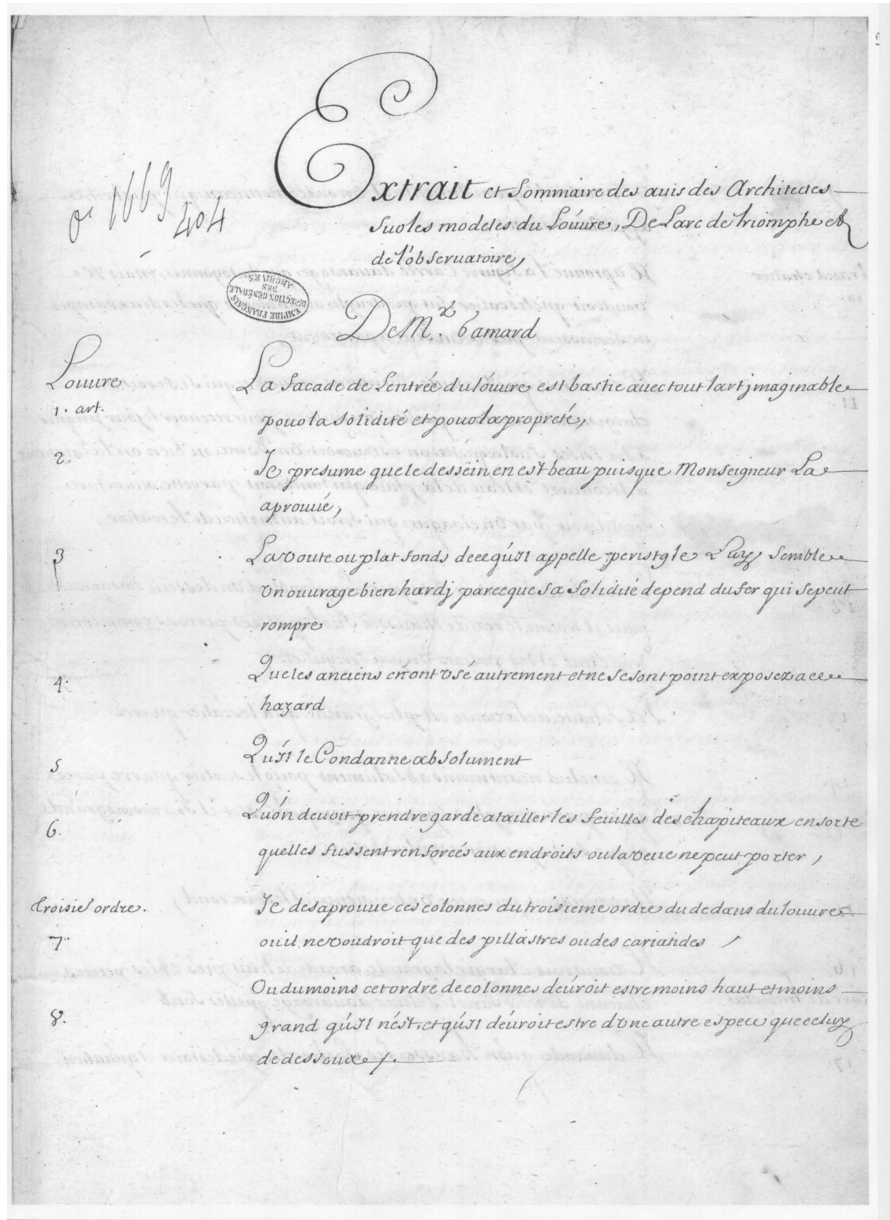 Extrait et Sommaire des auis des Architectes
Sur les modeles du Louure, De Larc de triomphe et
de l'obseruatoire,
O1 1669
404
EMPIRE FRANÇAIS
DIRECTION GÉNÉRALE
DES
ARCHIVES
De Mr. Gamard
Louure
1. art.
La facade de Lentrée du louure est bastie auec tout lart jmaginable
pour la solidité et pour la propreté,
2.
Je presume que le desséin en est beau puisque Monseigneur La
aprouué,
3
La voute ou plat fonds de ce qu'il appelle peristyle Luy Semble
vn ouurage bien hardj parce que sa solidité depend du fer qui se peut
rompre
4.
Que les anciens en ont vsé autrement et ne se sont point exposez a ce
hazard
5
Qu'il le Condanne absolument
6.
Qu'on deuoit prendre garde a tailler les feuilles des chapiteaux en sorte
quelles fussent renforcés aux endroits ou la veüe ne peut porter,
troisie. ordre.
7.
Je desaprouue ces colonnes du troisieme ordre du dedans du louure
ou il ne voudroit que des pillastres ou des cariatides
8.
Ou du moins cet ordre de colonnes deuroit estre moins haut et moins
grand qu'il n'est, et qu'il deuroit estre d'vne autre espece que celuy
de dessoux